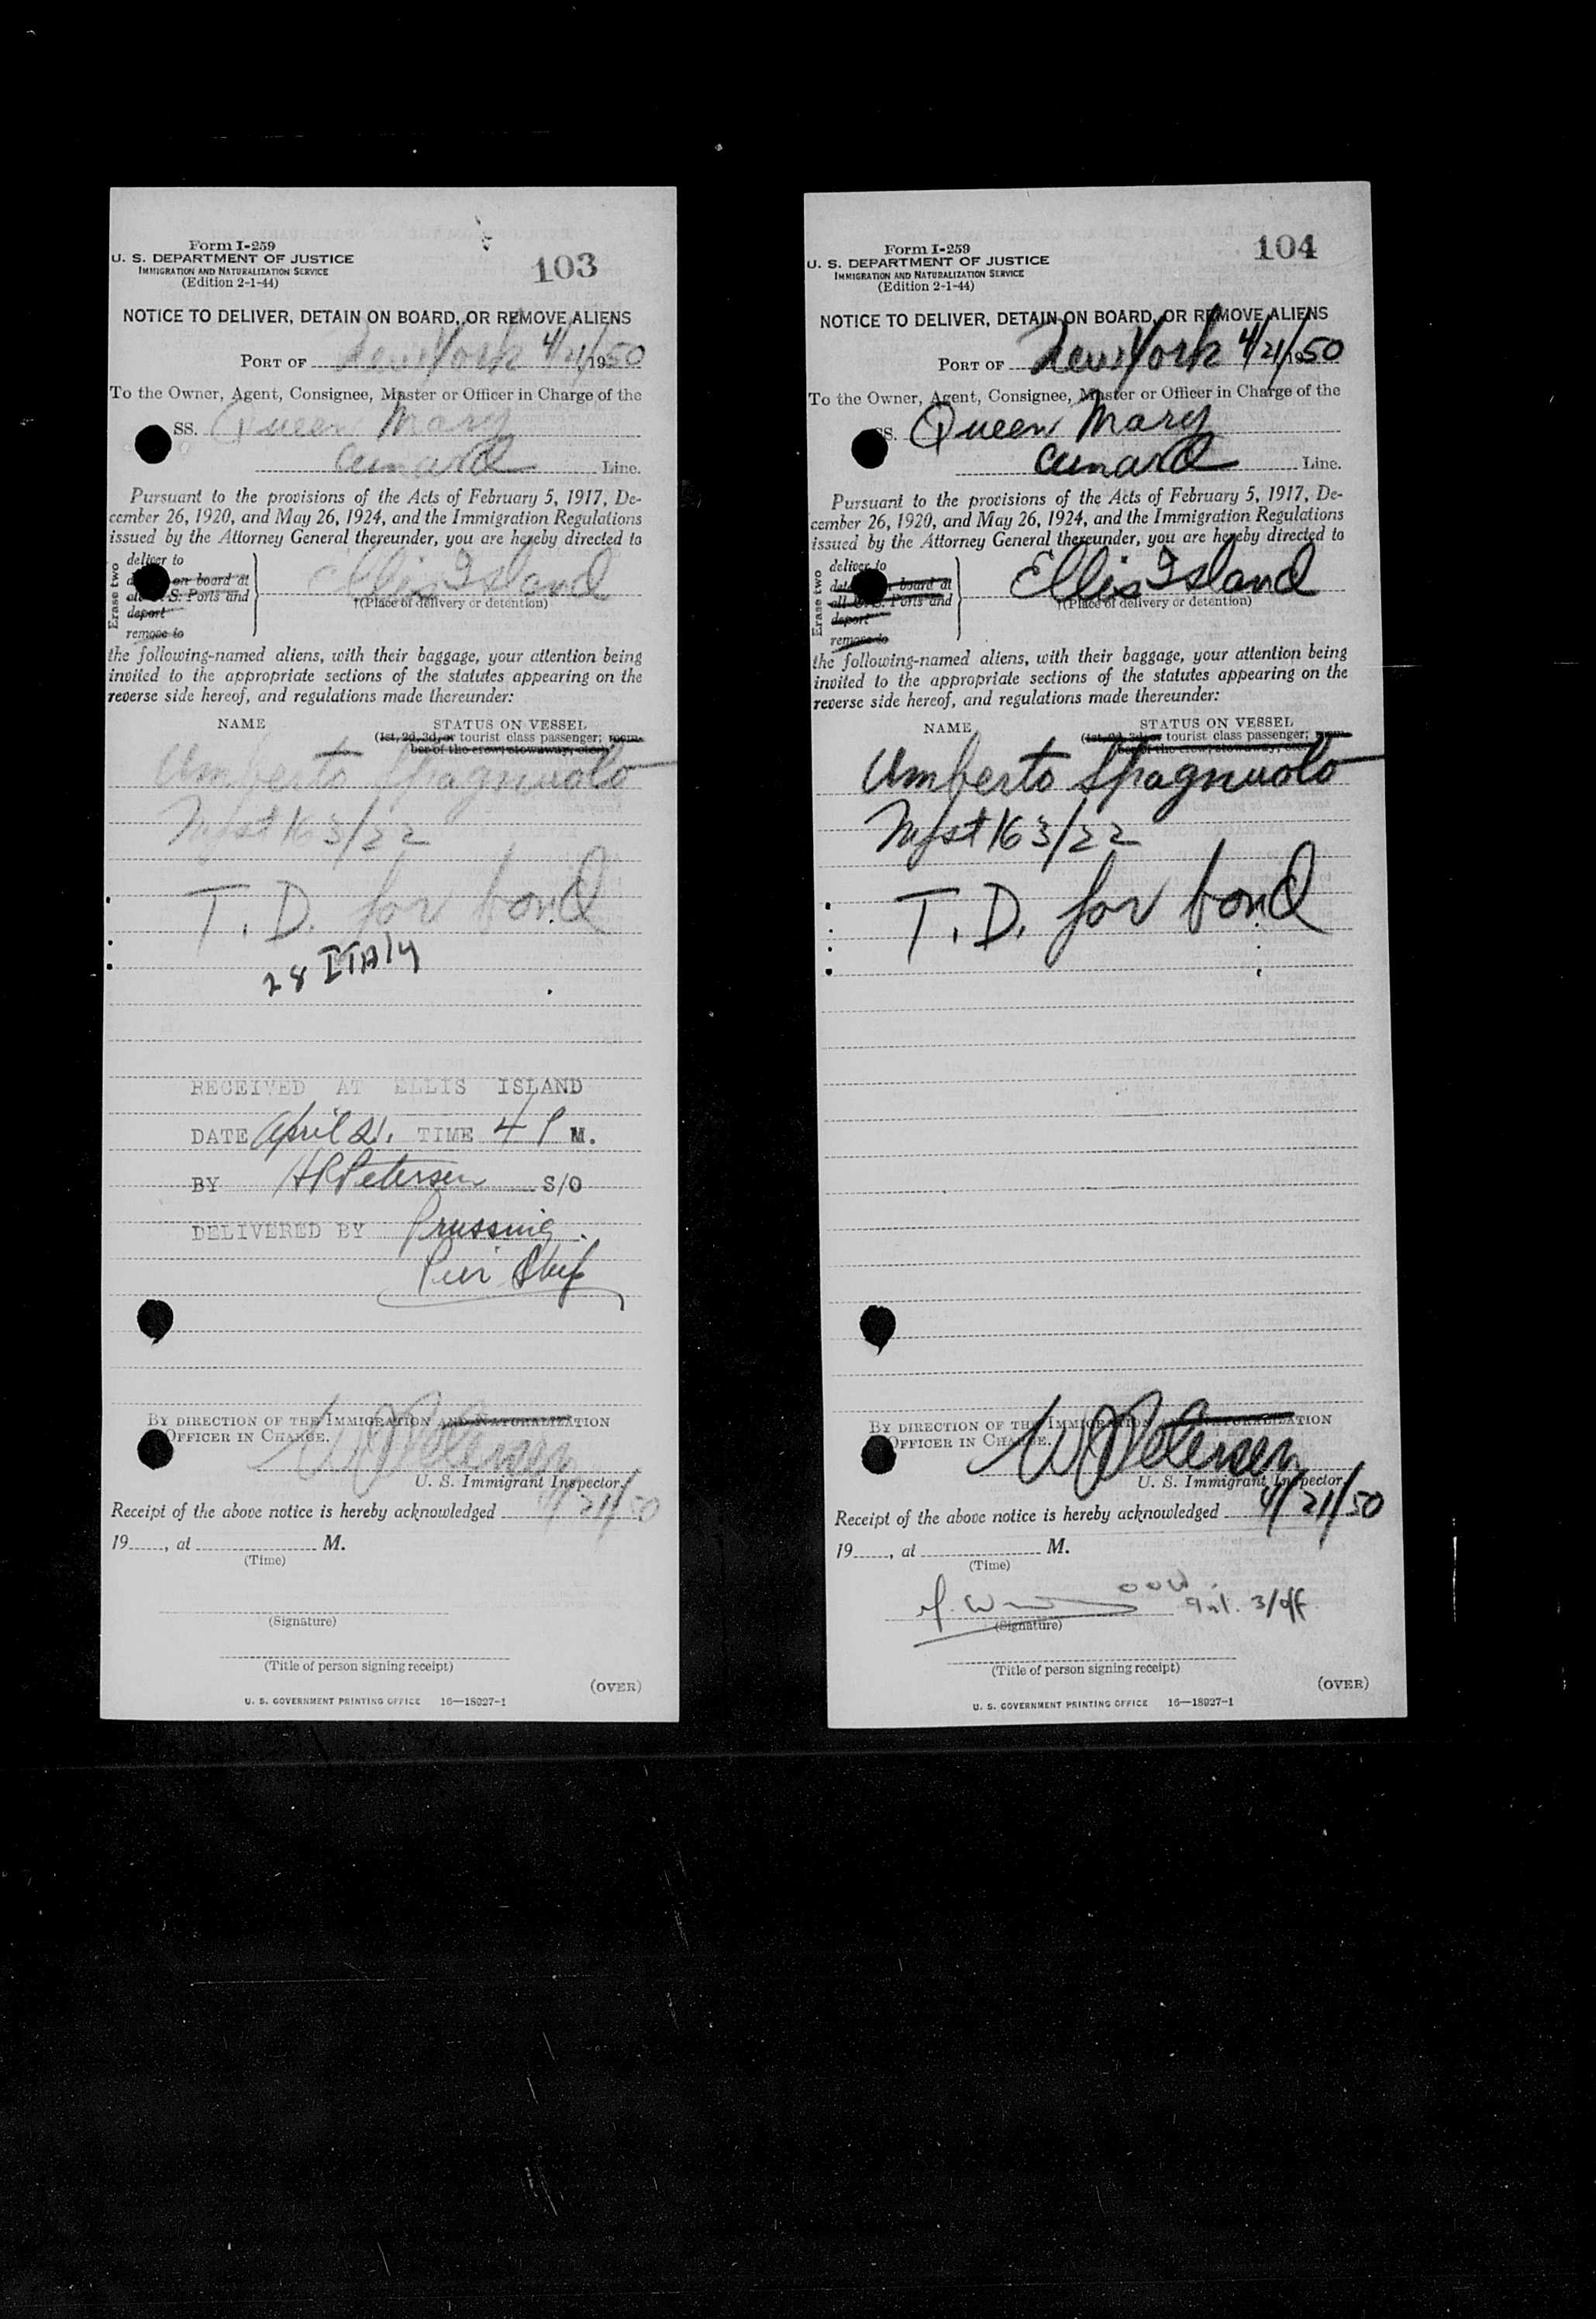 Form I-259
U. S. DEPARTMENT OF JUSTICE
IMMIGRATION AND NATURALIZATION SERVICE
(Edition 2-1-44)
103
NOTICE TO DELIVER, DETAIN ON BOARD, OR REMOVE ALIENS
PORT OF New York 4/21/1950
To the Owner, Agent, Consignee, Master or Officer in Charge of the
SS. Queen Mary
Cunard Line.
Pursuant to the provisions of the Acts of February 5, 1917, De-
cember 26, 1920, and May 26, 1924, and the Immigration Regulations
issued by the Attorney General thereunder, you are hereby directed to
Erase two
deliver to
on board at
all S. Ports and
deport
remove to
Ellis Island
†(Place of delivery or detention)
the following-named aliens, with their baggage, your attention being
invited to the appropriate sections of the statutes appearing on the
reverse side hereof, and regulations made thereunder:
NAME STATUS ON VESSEL
(1st, 2d, 3d, or tourist class passenger; mem-
ber of the crew; stowaway, etc.)
Umberto Spagnuolo
Mfst 16 3/22
T. D. for bond
28 ITAly
RECEIVED AT ELLIS ISLAND
DATE April 21. TIME 4 P M.
BY HRPetersen S/O
DELIVERED BY Prussing.
Pier
BY DIRECTION OF THE IMMIGRATION AND NATURALIZATION
OFFICER IN CHARGE.
U. S. Immigrant Inspector.
Receipt of the above notice is hereby acknowledged 4/21/50
19....., at M.
(Time)
(Signature)
(Title of person signing receipt)
(OVER)
U. S. GOVERNMENT PRINTING OFFICE 16—18027-1
Form I-259
U. S. DEPARTMENT OF JUSTICE
IMMIGRATION AND NATURALIZATION SERVICE
(Edition 2-1-44)
104
NOTICE TO DELIVER, DETAIN ON BOARD, OR REMOVE ALIENS
PORT OF New York 4/21/1950
To the Owner, Agent, Consignee, Master or Officer in Charge of the
SS. Queen Mary
Cunard Line.
Pursuant to the provisions of the Acts of February 5, 1917, De-
cember 26, 1920, and May 26, 1924, and the Immigration Regulations
issued by the Attorney General thereunder, you are hereby directed to
Erase two
deliver to
board at
all U. S. Ports and
deport
remove to
Ellis Island
†(Place of delivery or detention)
the following-named aliens, with their baggage, your attention being
invited to the appropriate sections of the statutes appearing on the
reverse side hereof, and regulations made thereunder:
NAME STATUS ON VESSEL
(1st, 2d, 3d, or tourist class passenger; mem-
ber of the crew; stowaway, etc.)
Umberto Spagnuolo
Mfst 16 3/22
T. D. for bond
BY DIRECTION OF THE IMMIGRATION AND NATURALIZATION
OFFICER IN CHARGE.
U. S. Immigrant Inspector.
Receipt of the above notice is hereby acknowledged 4/21/50
19....., at M.
(Time)
3/off
(Signature)
(Title of person signing receipt)
(OVER)
U. S. GOVERNMENT PRINTING OFFICE 16—18027-1